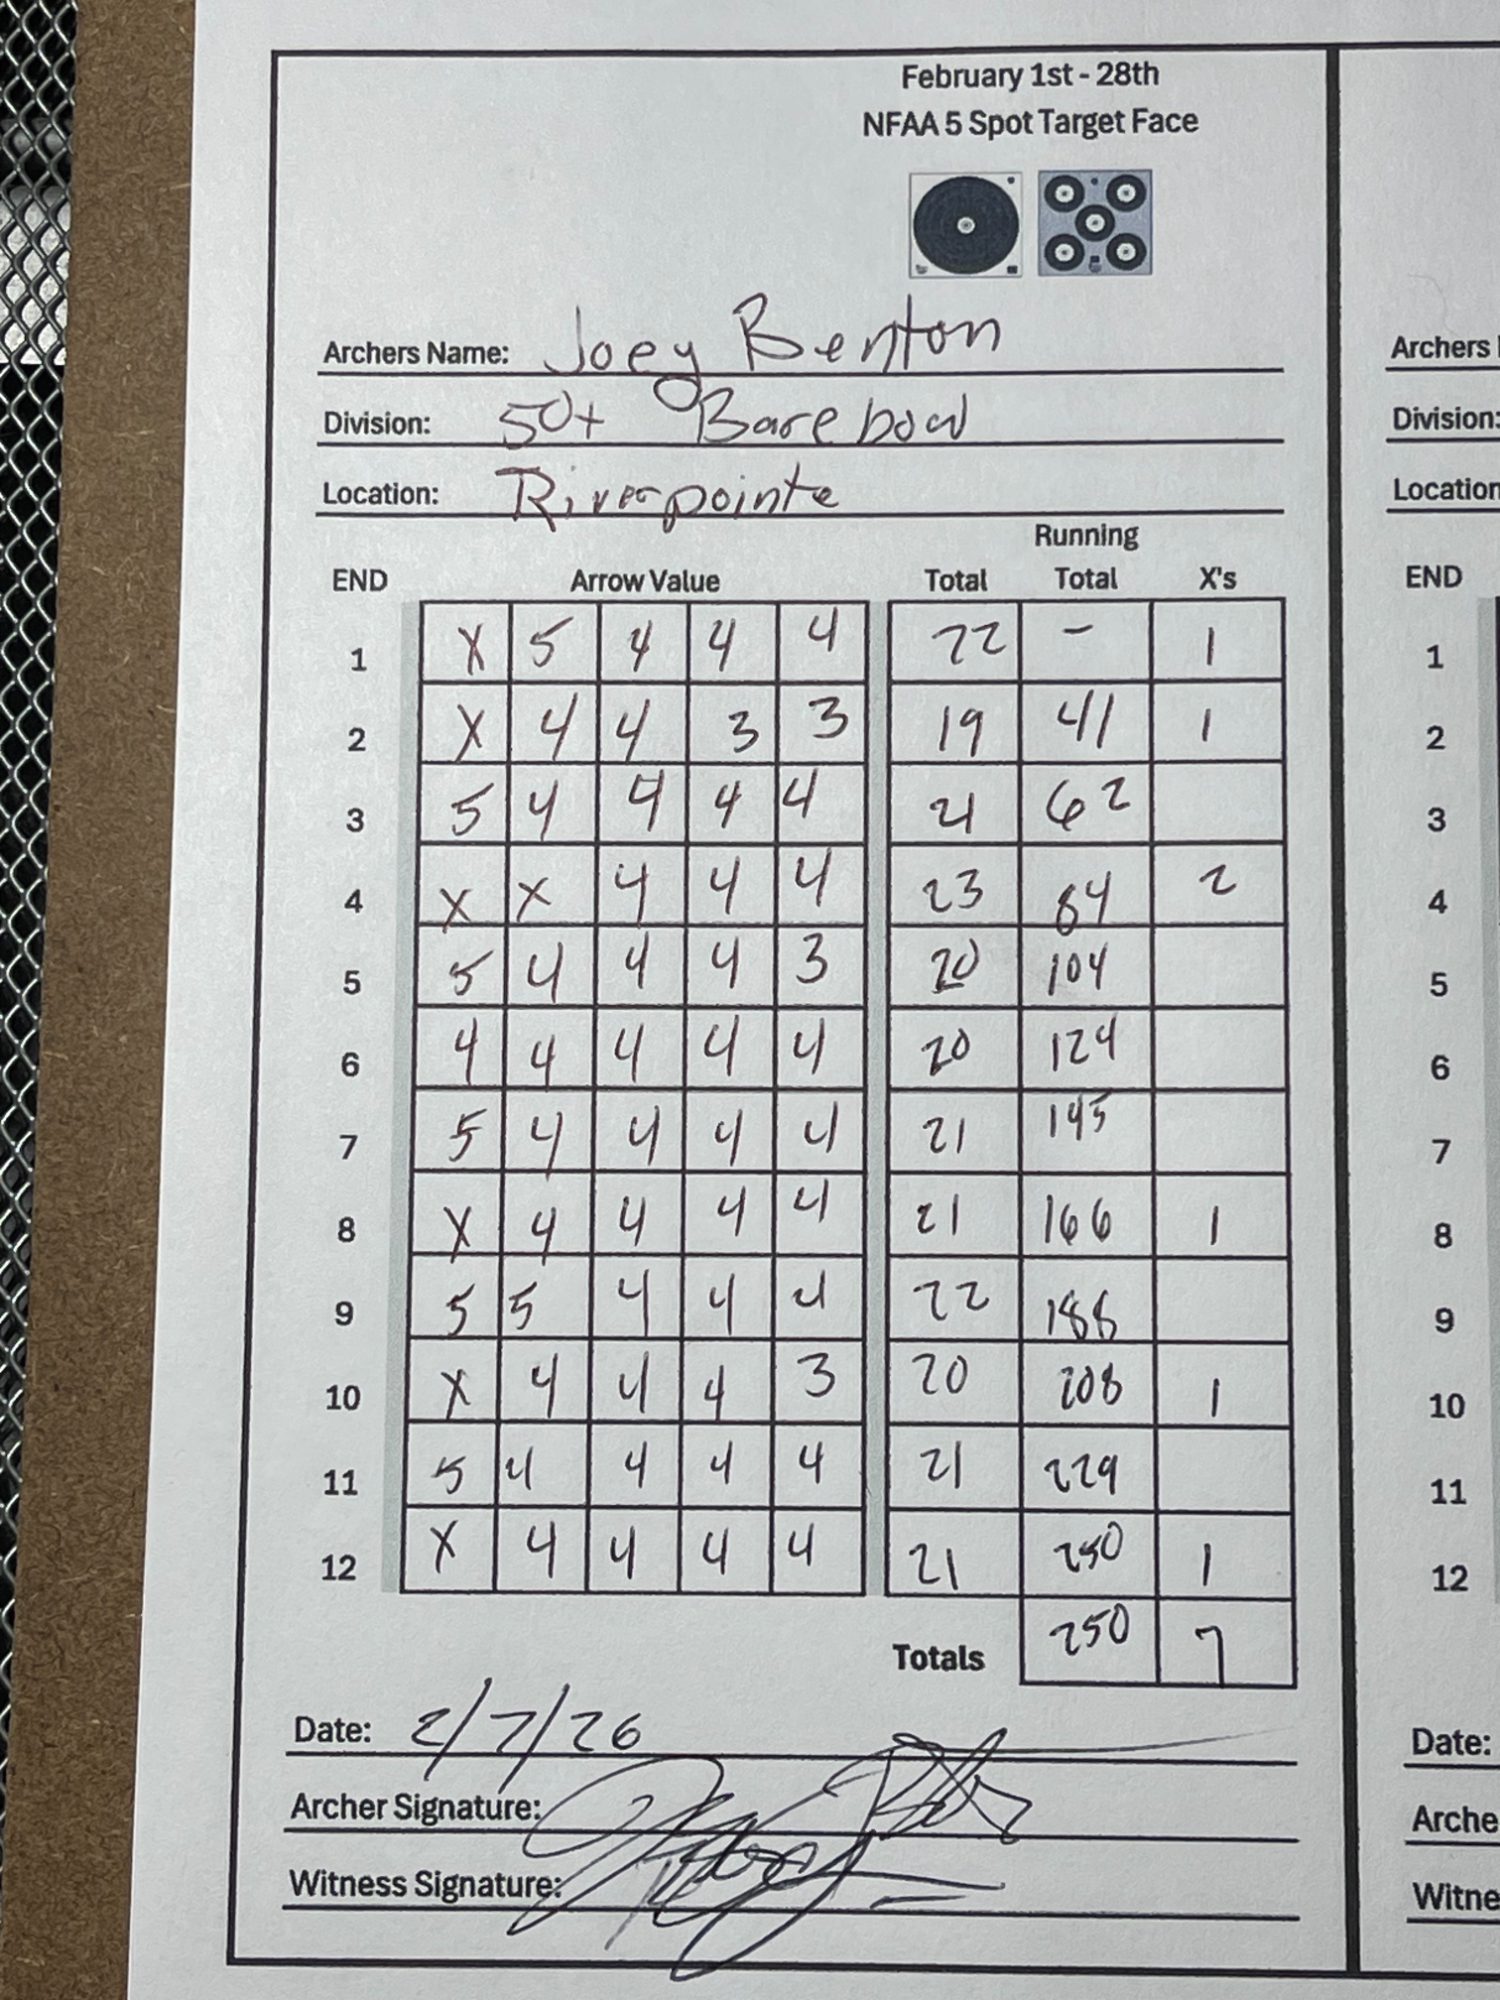 February 1st - 28th
NFAA 5 Spot Target Face
Archers Name: Joey Benton
Division: 50+ Barebow
Location: Riverpointe
END Arrow Value Total Running Total X's
1 X 5 4 4 4 22 - 1
2 X 4 4 3 3 19 41 1
3 5 4 4 4 4 21 62
4 X X 4 4 4 23 84 2
5 5 4 4 4 3 20 104
6 4 4 4 4 4 20 124
7 5 4 4 4 4 21 145
8 X 4 4 4 4 21 166 1
9 5 5 4 4 4 22 188
10 X 4 4 4 3 20 208 1
11 5 4 4 4 4 21 229
12 X 4 4 4 4 21 250 1
Totals 250 7
Date: 2/7/26
Archer Signature:
Witness Signature:
Archers
Division:
Location
END
1
2
3
4
5
6
7
8
9
10
11
12
Date:
Arche
Witne